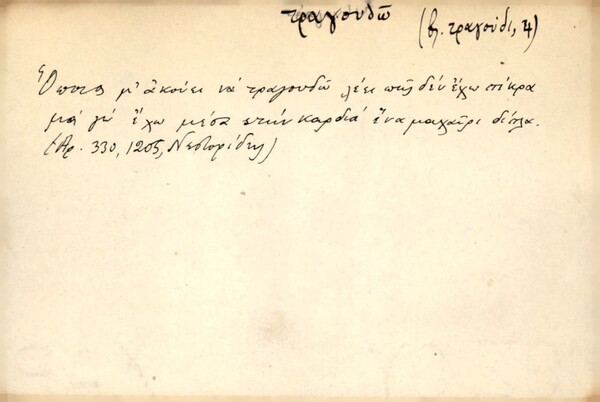 τραγουδῶ
(βλ. τραγούδι, 4)
Ὅποιος μ' ἀκούει νὰ τραγουδῶ λέει πῶς δὲν ἔχω πίκρα
μὰ γὼ ἔχω μέσα στὴν καρδιὰ ἕνα μαχαῖρι δίπλα.
(Ἀρ. 330, 1205, Νεστορίδης)